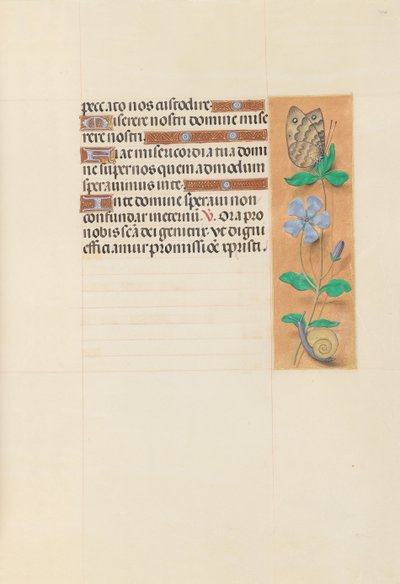 peccato nos custodire.
Miserere nostri domine mise
rere nostri.
Fiat misericordia tua domi
ne super nos quemadmodum
speravimus in te.
In te domine speravi non
confundar in eternū. V. Ora pro
nobis scā dei genitrix. Vt digni
efficiamur promissiōe xpristi.